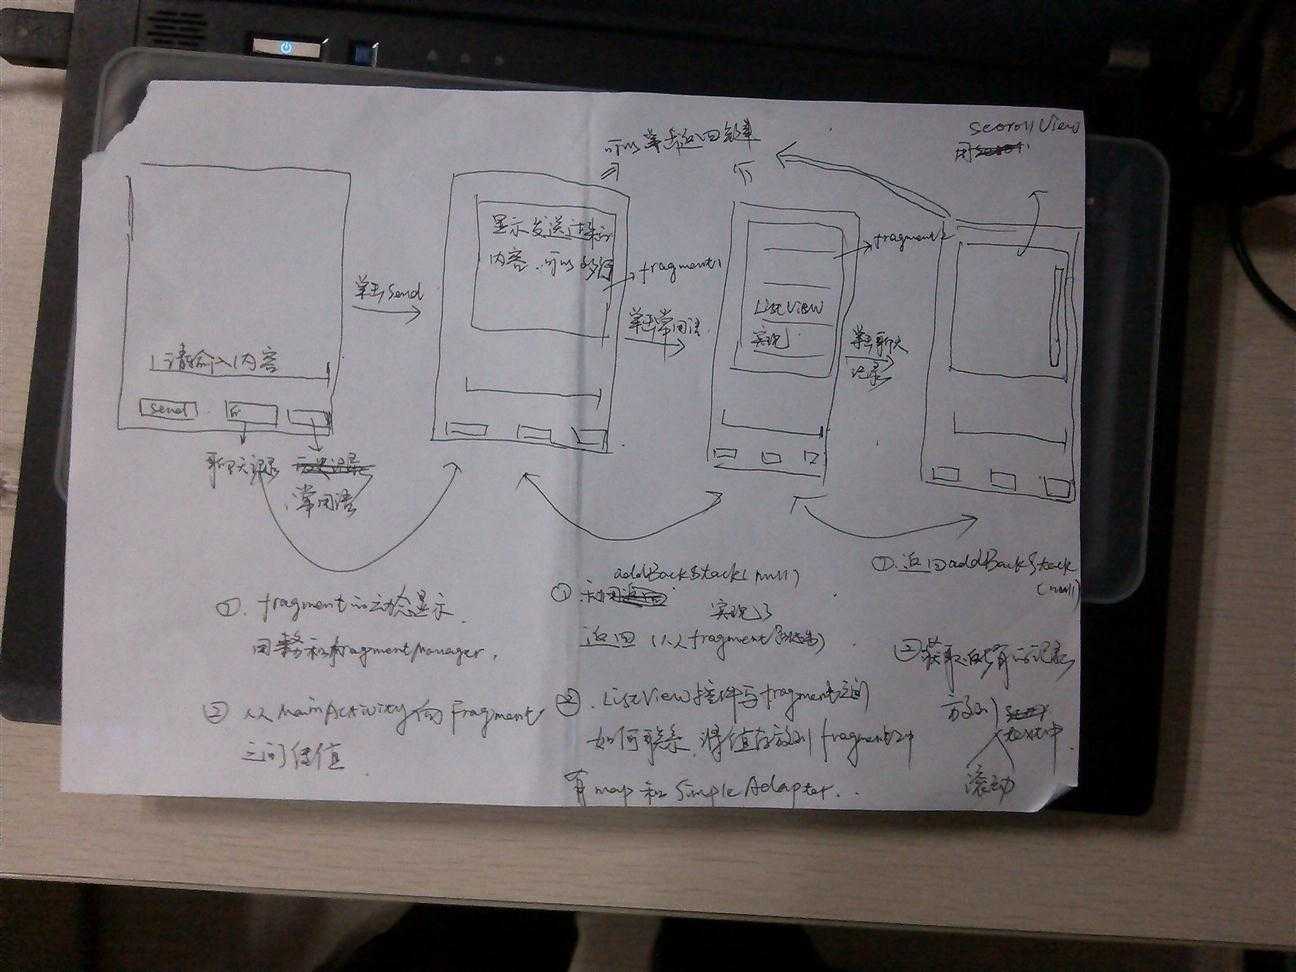 可以单击返回键
ScorollView
用
显示发送过来的
内容,可以多行
fragment1
fragment2
单击Send
单击常用语
ListView
实现
单击聊天
记录
请输入内容
Send
聊天记录
常用语
① fragment的动态显示
用 和fragmentManager,
② 从MainActivity向Fragment
之间传值
① 利用 addBackStack(null)
实现了
返回(从fragment
② ListView控件与fragment之间
如何联系,将值存放到fragment2中
有map和SimpleAdapter...
①返回addBackStack
(null)
②获取 所有的记录
放到
text中
滚动